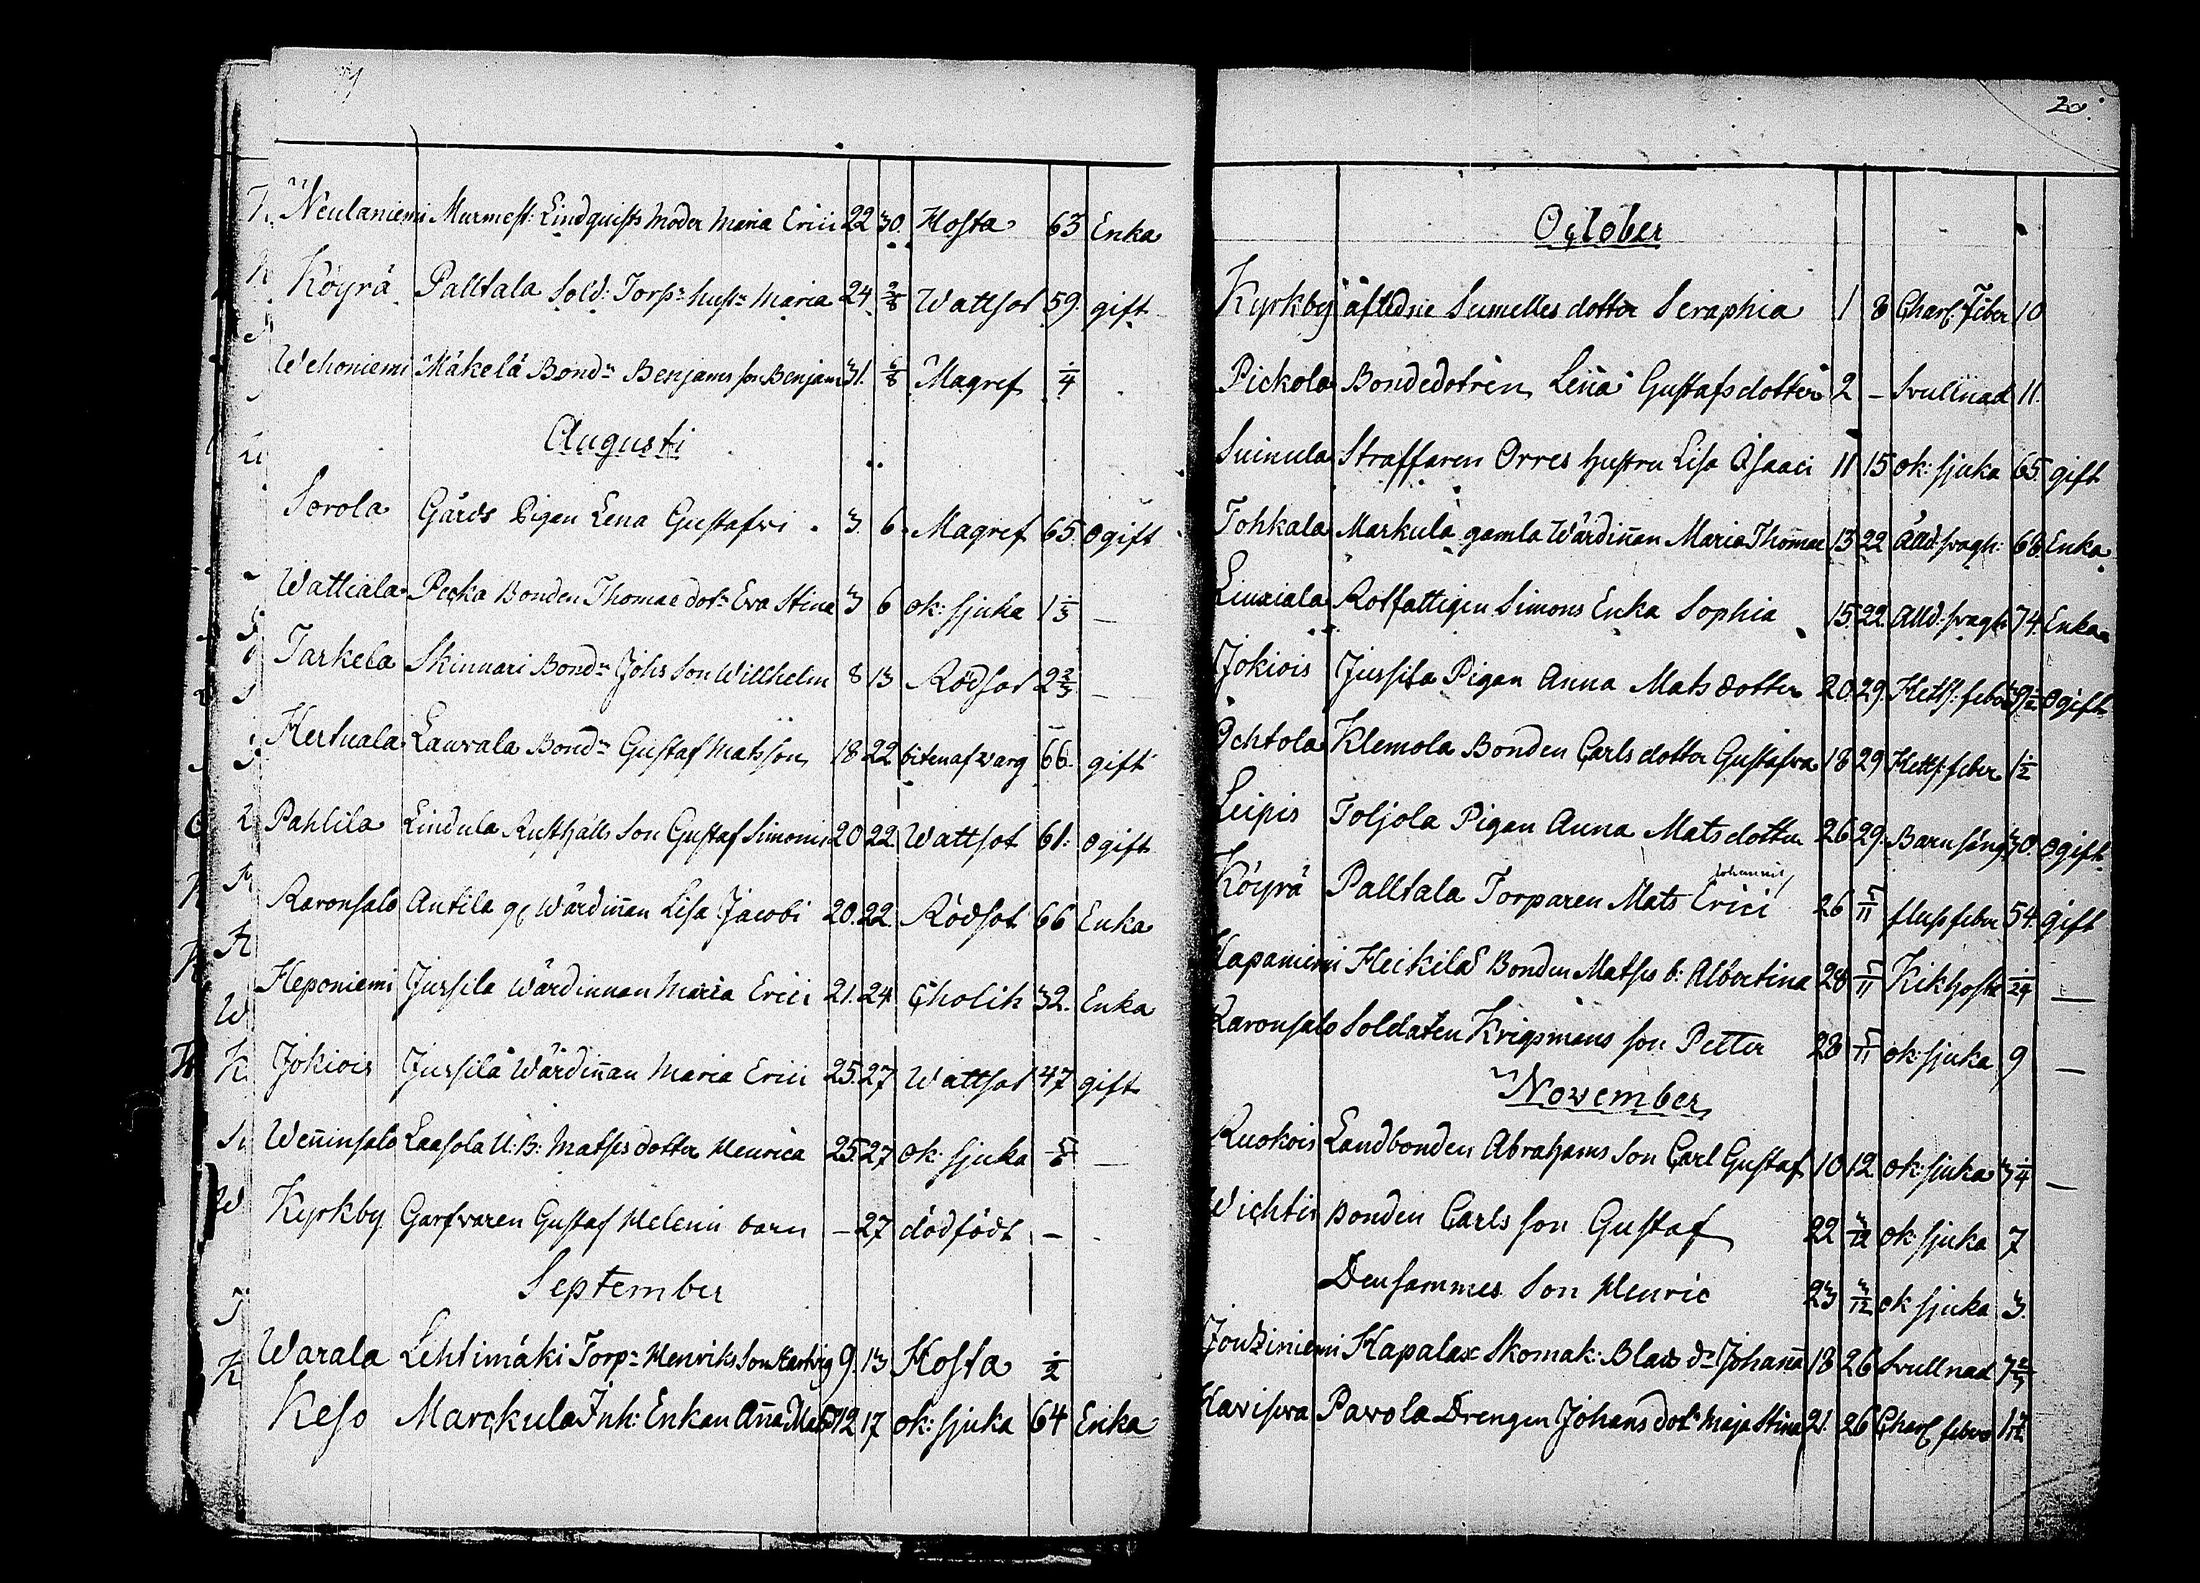 Neulaniemi Murmest: Lindquists moder Maria Erici 22 30. Hosta 63 Enka
Köyrä Palltala Sold: Torp: hust: Maria 24. 2/8 Wattsot 59. gift
Wehoniemi Mäkelä Bond: Benjams son Benjam 31. 6/8 Magref 1/4
Augusti
Sorola Gårds Pigan Lena Gustafvi 3. 6. Magref 65. Ogift
Wattiala Pecka Bonden Thomae dot: Eva Stina 3 6 ok: sjuka 1 1/3 –
Tarkela Skinnari Bond: Johs Son Willhelm 8 13 Rödsot 2 2/3 –
Hertuala Lauvala Bond: Gustaf Matsson 18 22 biten af varg 66. gift
Pahlila Lindula Rusthålls Son Gustaf Simonis 20 22 Wattsot 61: Ogift
Raronsalo Antila gl Wärdinnan Lisa Jacobi 20. 22. Rödsot 66 Enka
Heponiemi Jussila Wärdinnan Maria Erici 21. 24. Cholik 32. Enka
Jokiois Jussila Wärdinnan Maria Erici 25. 27 Wattsot 47 gift
Wenninsalo Laasola U: B: Matses dotter Henrica 25. 27 ok: sjuka 5/6 –
Kyrkby Garfvaren Gustaf Helenii barn – 27 dödfödt –
September
Warala Lehtimäki Torp: Henriks Son Hartvig 9. 13 Hosta 1/2
Keso Marckula Inh: Enkan Anna Matsd 12 17 ok: sjuka 64 Enka
20.
October
Kyrkby afledne Sumelles dotter Seraphia 1 8 Charl: Feber 10
Pickola Bondedotren Lena Gustafsdotter 2 – Svullnad 11.
Suinula Straffaren Orres hustru Lisa Isaaci 11 15 ok: sjuka 65. gift
Tohkala Markula gamla Wärdinnan Maria Thomae 13 22 Ålld: svagh: 68 Enka
Liuxiala Rotfattigen Simons Enka Sophia 15. 22. Ålld: svagh 74. Enka
Jokiois Jussila Pigan Anna Mats dotter 20. 29. Hetts: feber Ogift
Ochtola Klemola Bonden Carls dotter Gustafva 18 29 Hetts: feber 1 1/2
Leipis Toljola Pigan Anna Matsdotter 26 29. Barnsäng 30. Ogift
Johannis
Köyrä Palltala Torparen Mats Erici 26 5/11 fluss feber 54. gift
Hapaniemi Heikilä Bonden Matses b: Albertina 28 5/11 Kikhosta 1/24 –
Raronsalo Soldaten Krigsmans son Petter 28 5/11 ok: sjuka 9 –
November
Ruokois Landbonden Abrahams son Carl Gustaf 10 12 ok: sjuka 3 1/4 –
Wichtis Bonden Carls son Gustaf 22 3/12 ok: sjuka 7
Densammes Son Henric 23 3/12 ok: sjuka 3.
Jouziniemi Kapalax Skomak: Blads d: Johanna 18 26 Svullnad 7 2/3
Havisva Pavola Drengen Johans dot: Maja Stina 21. 26 Charl feber